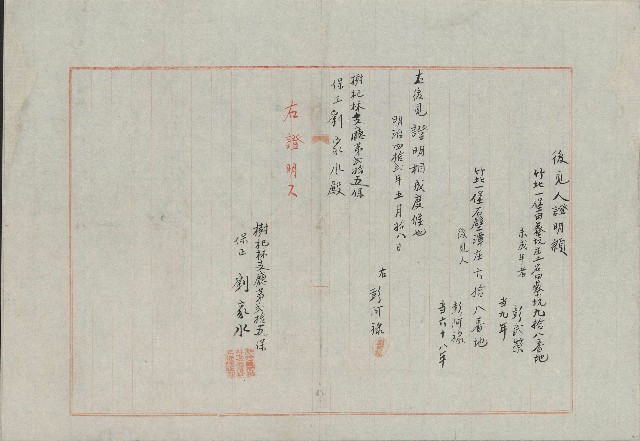 後見人證明願
竹北一堡田藔坑庄土名田藔坑九拾八番地
未成年者
彭武榮
當九年
竹北一堡石壁潭庄六拾八番地
後見人
彭阿祿
當六十八年
右後見證明相成度候也
明治四拾弍年五月拾八日
右 彭阿祿
樹杞林支廳第弍拾五保
保正劉家水殿
右證明ス
樹杞林支廳第弍拾五保
保正 劉家水